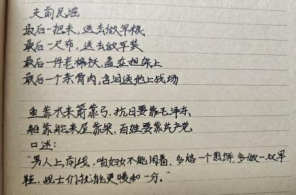 支前民谣
最后一把米,送去做军粮
最后一尺布,送去做军装
最后一件老棉袄,盖在担架上
最后一个亲骨肉,含泪送他上战场
鱼靠水来箭靠弓,抗日要靠毛泽东
船靠舵来屋靠梁,百姓要靠共产党
口述:
“男人上前线,咱妇女不能闲着,多烙一个煎饼,多做一双军
鞋,战士们就能更暖和一分。”